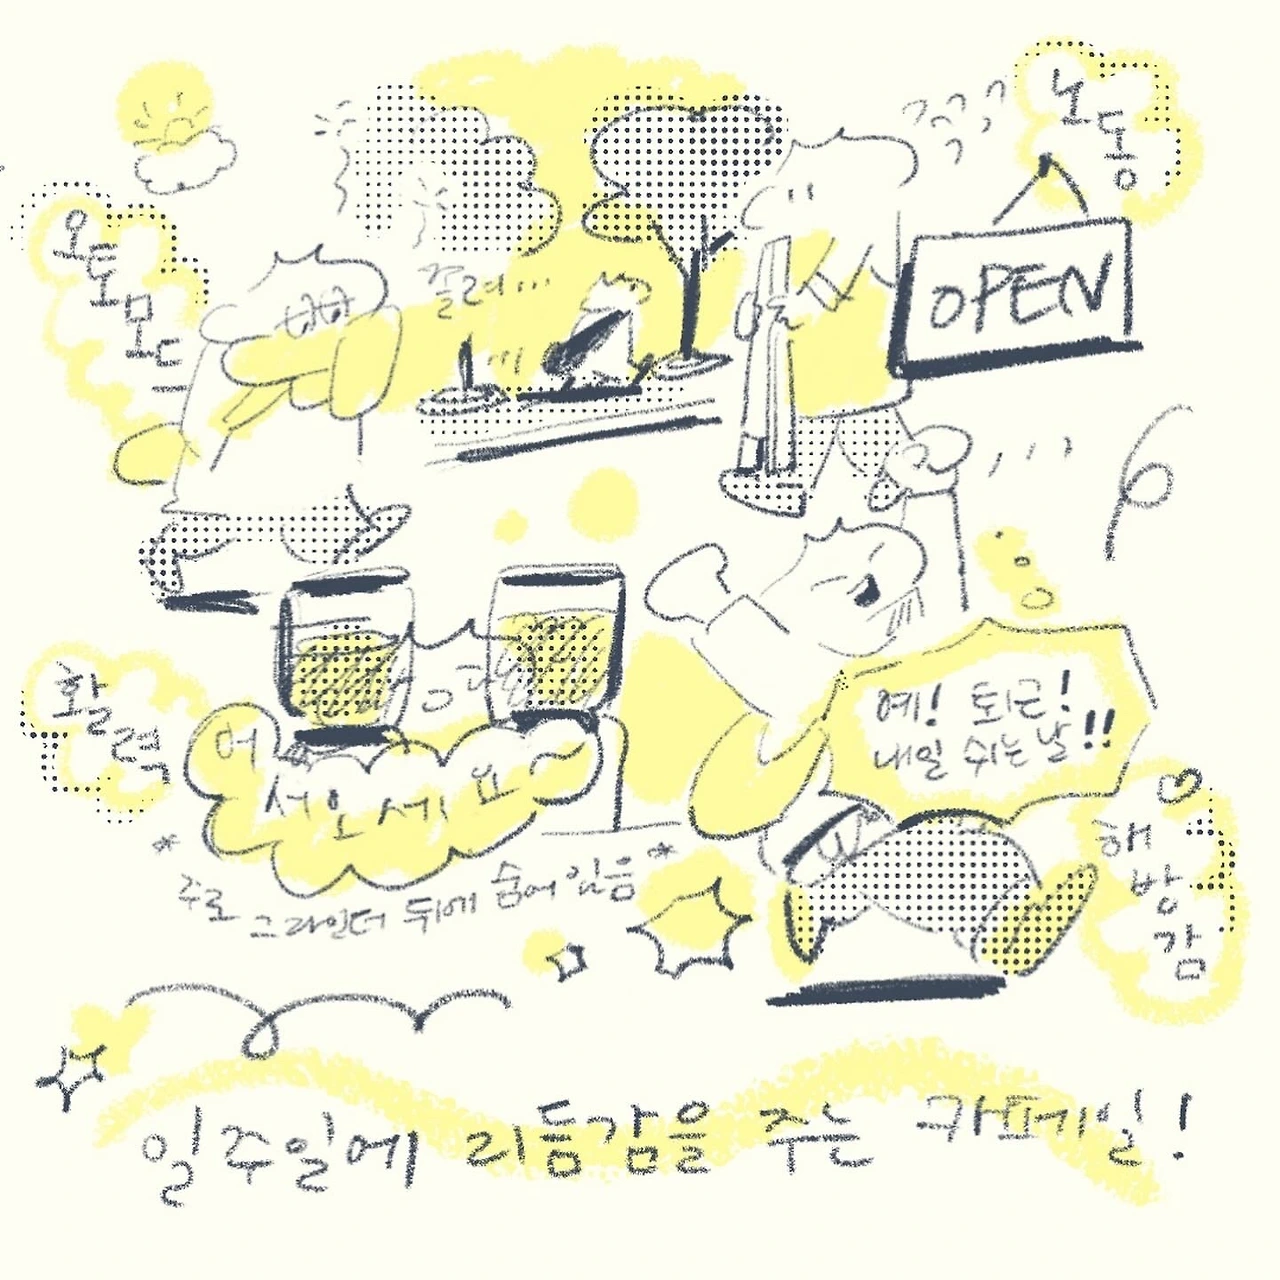 오토모드
졸려...
노동
OPEN
활력
어서오세요~
*주로 그라인더 뒤에 숨어 있음*
예! 퇴근!
내일 쉬는 날!!
해방감
일주일에 리듬감을 주는 카페일!